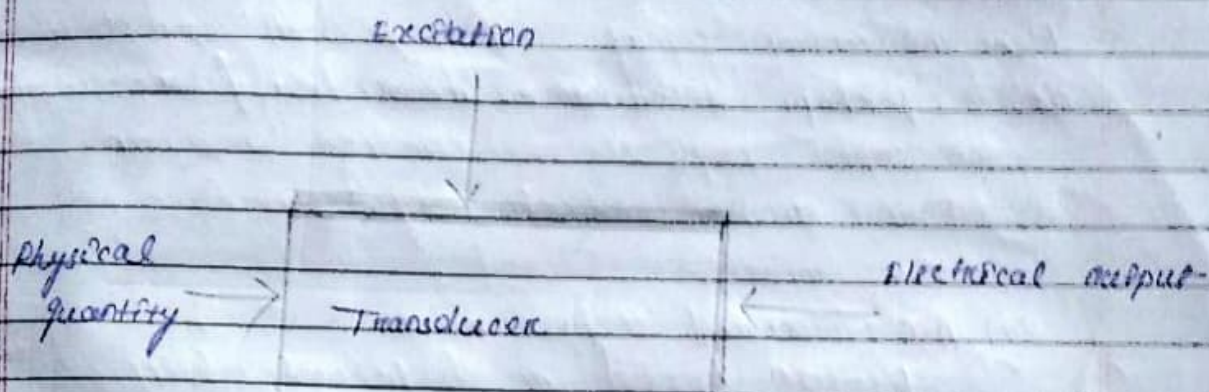 Excitation
Physical
quantity
Transducer
Electrical output